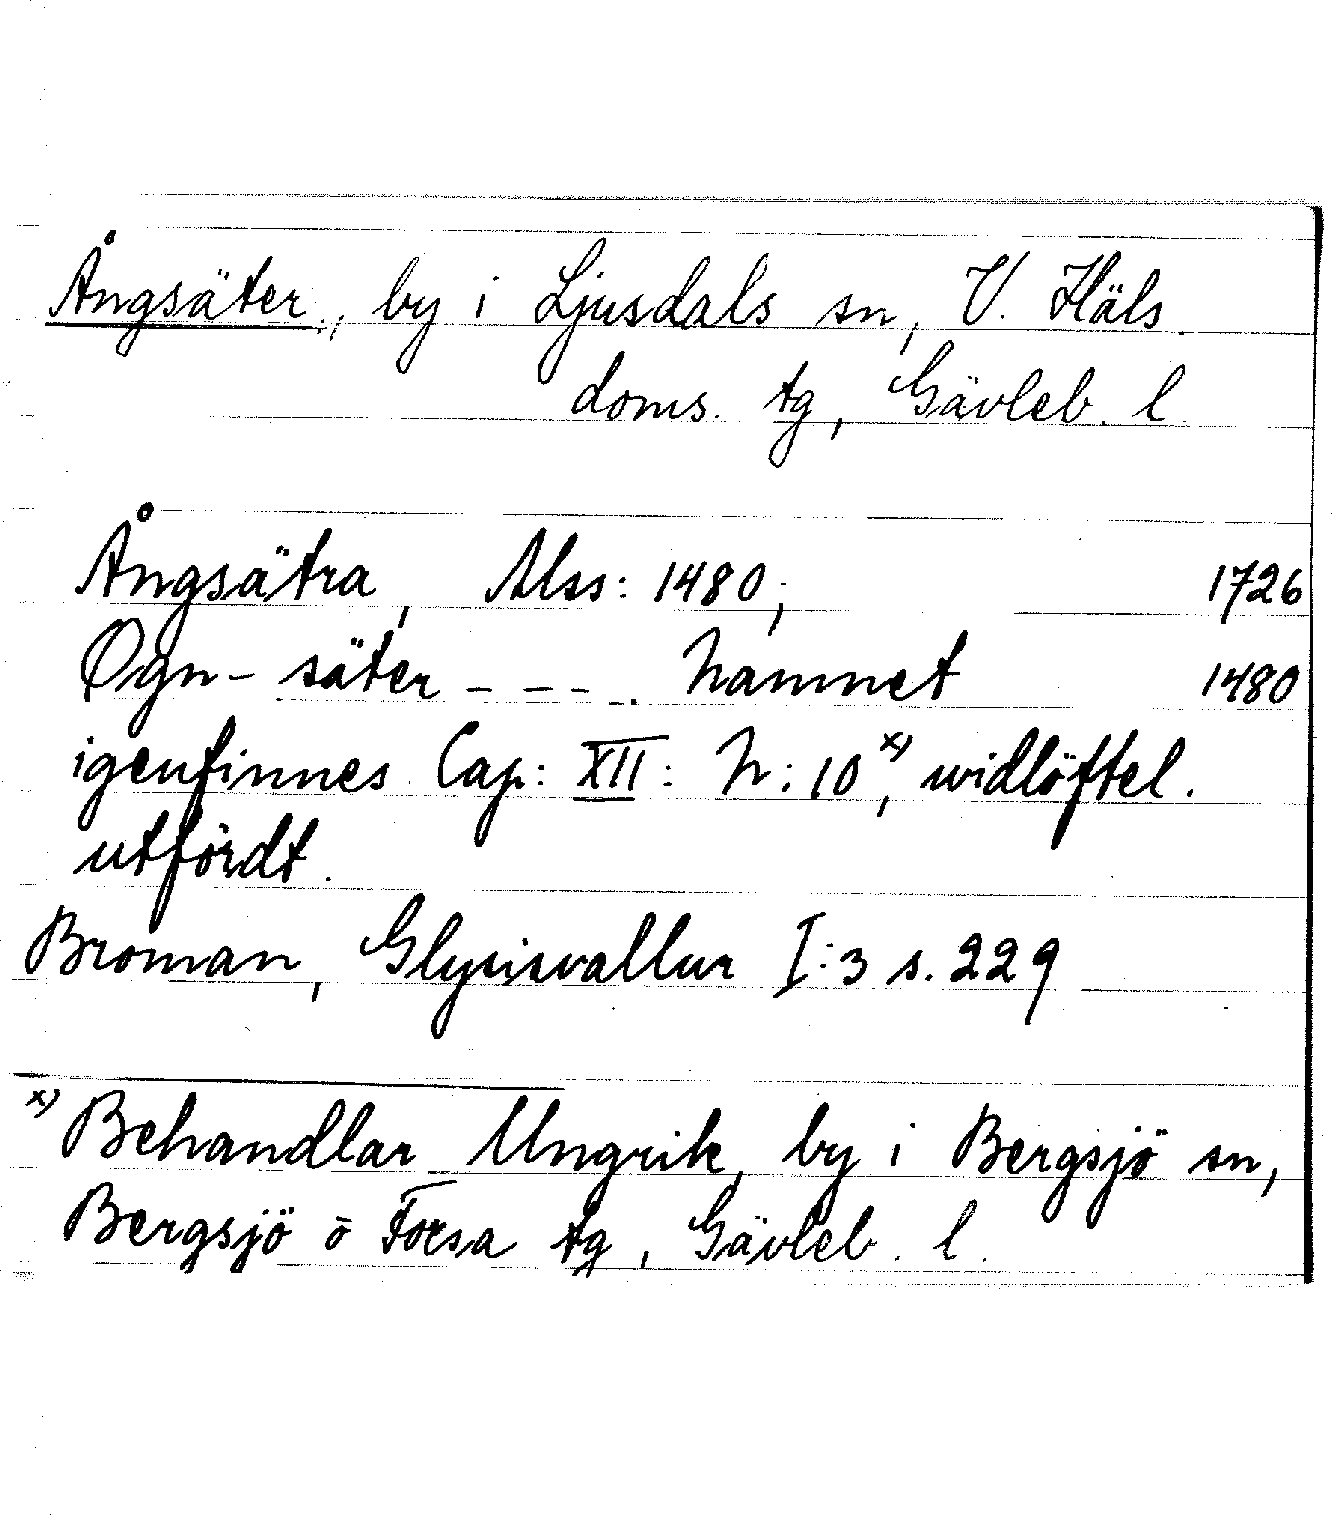 Ångsäter, by i Ljusdals sn, V. Häls.
doms. tg, Gävleb. l
Ångsätra, Mss: 1480; 1726
Øgn- säter - - - -. Namnet 1480
igenfinnes Cap: XII: N: 10 x), widlöftel.
utfördt.
Broman, Glysisvallur I:3 s. 229
x) Behandlar Ungrik, by i Bergsjö sn,
Bergsjö o Forsa tg, Gävleb. l.